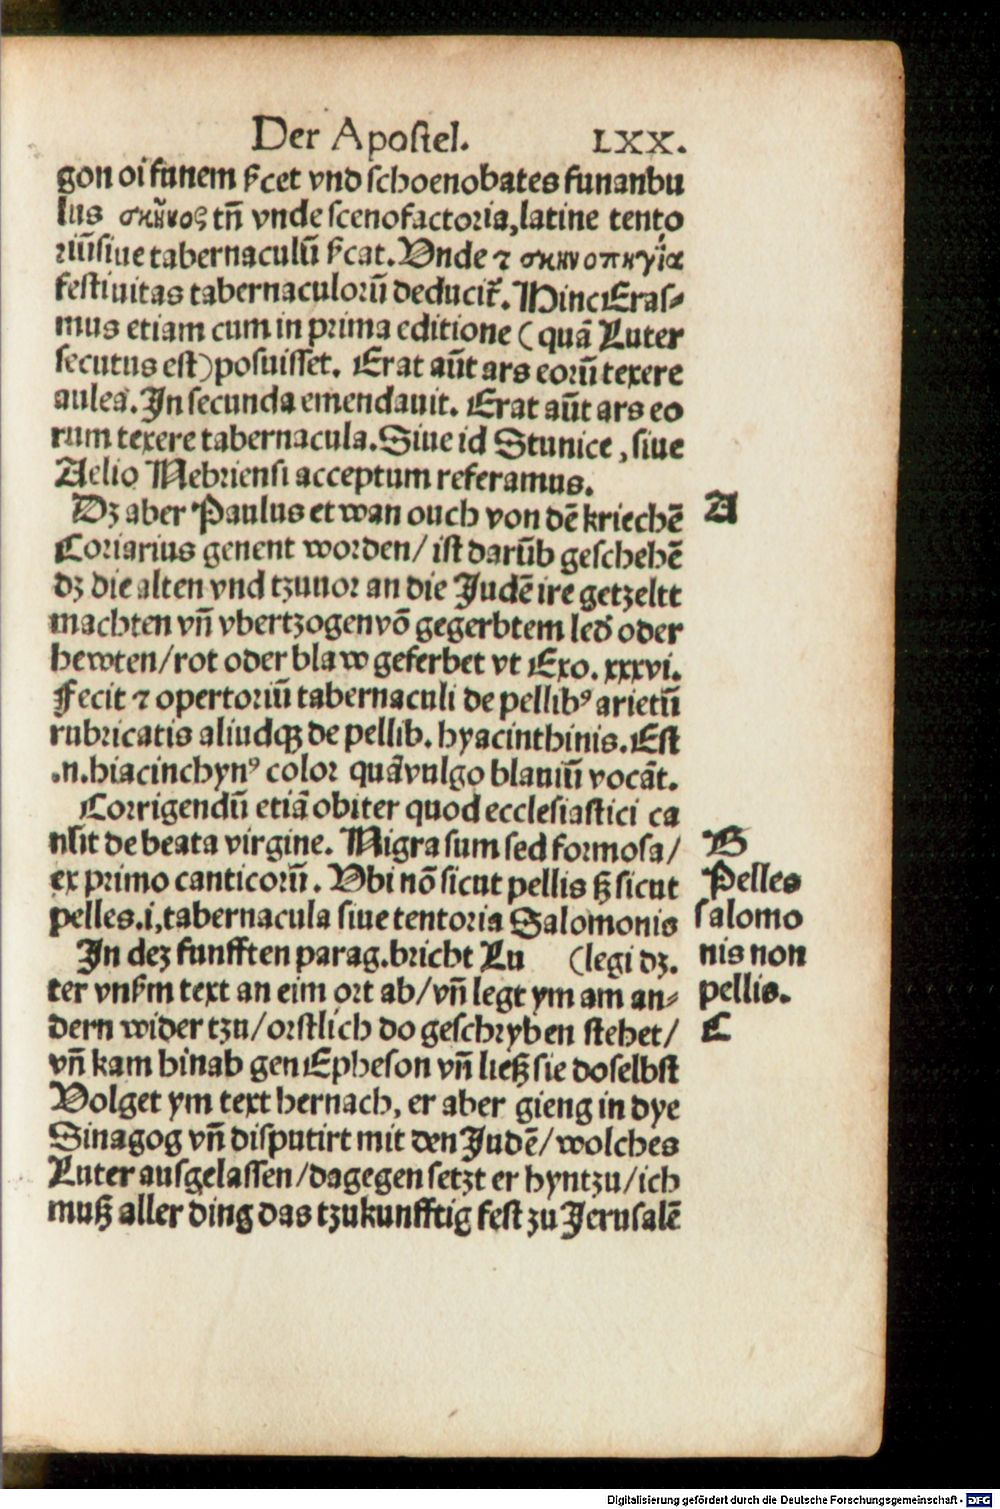 Der Apostel. LXX.
gon oi funem ſ͛cet vnd ſchoenobates funanbu
lus σκῆνος tñ vnde ſcenofactoria, latine tento
riũ ſiue tabernaculũ ſ͛cat. Vnde ⁊ σκηνοπηγία
feſtiuitas tabernaculorũ deducit͛. Hinc Eraſ⸗
mus etiam cum in prima editione (quã Luter
ſecutus eſt) poſuiſſet. Erat aũt ars eorũ texere
aulea. In ſecunda emendauit. Erat aũt ars eo
rum texere tabernacula. Siue id Stunice, ſiue
Aelio Nebrienſi acceptum referamus.
Dz aber Paulus etwan ouch von dẽ kriechẽ
Coriarius genent worden/ iſt darũb geſchehẽ
dz die alten vnd tzuuor an die Judẽ ire getzeltt
machten vñ vbertzogen võ gegerbtem led͛ oder
hewten/ rot oder blaw geferbet vt Exo. xxxvi.
Fecit ⁊ opertoriũ tabernaculi de pellibꝰ arietũ
rubricatis aliudqꝫ de pellib. hyacinthinis. Eſt
.n. hiacinchynꝰ color quã vulgo blauiũ vocãt.
Corrigendũ etiã obiter quod eccleſiaſtici ca
nſit de beata virgine. Nigra ſum ſed formoſa/
ex primo canticorũ. Vbi nõ ſicut pellis ſꝫ ſicut
pelles .i, tabernacula ſiue tentoria Salomonis
In dez funfften parag. bricht Lu (legi dz.
ter vnſ͛m text an eim ort ab/ vñ legt ym am an⸗
dern wider tzu/ orſtlich do geſchryben ſtehet/
vñ kam hinab gen Epheſon vñ ließ ſie doſelbſt
Volget ym text hernach, er aber gieng in dye
Sinagog vñ diſputirt mit den Judẽ/ wolches
Luter auſgelaſſen/ dagegen ſetzt er hyntzu/ ich
muß aller ding das tzukunfftig feſt zu Jeruſalẽ
A
B
Pelles
ſalomo
nis non
pellis.
C
Digitalisierung gefördert durch die Deutsche Forschungsgemeinschaft - DFG